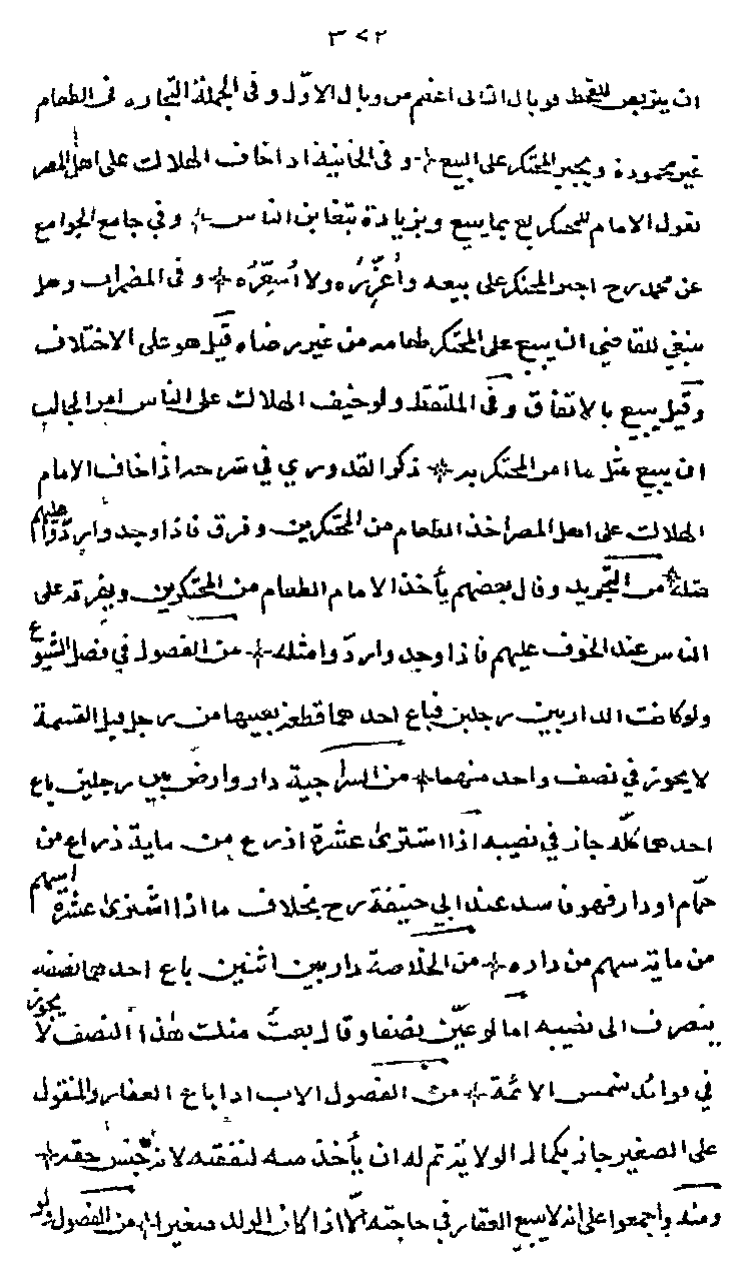 ٣٧٢
ان يتربص للقحط فوبال الثانى اعظم من وبال الاوّل وفى الجملة التجاره فى الطعام
غير محمودة ويجبر المحتكر على البيع وفى الخانية اذا خاف الهلاك على اهل المصر
نقول الامام للمحتكر بع بما يبيع وبزيادة يتغابن الناس وفي جامع الجوامع
عن محمد رح اجبر المحتكر على بيعه وأعزّره ولا أسعّره * وفى المضمرات وهل
ينبغي للقاضي ان يبيع على المحتكر طعامه من غير رضاه قيل هو على الاختلاف
وقيل يبيع بالاتفاق وفى الملتقط ولو خيف الهلاك على الناس امر الجالب
ان يبيع مثل ما امر المحتكر به * ذكر القدوري في شرحه اذا خاف الامام
الهلاك على اهل المصر اخذ الطعام من المحتكرين وفرق فاذا وجدوا ردّوا عليهم
مثله * من التجريد وقال بعضهم يأخذ الامام الطعام من المحتكرين ويفرقه على
الناس عند الخوف عليهم فاذا وجدوا ردّوا مثله * من الفصول في فصل الشيوع
ولو كانت الدار بين رجلين فباع احدهما قطعة بعينها من رجل قبل القسمة
لا يجوز في نصف واحد منهما * من السراجية دار وارض بين رجلين باع
احدهما كلّه جاز في نصيبه اذا اشترى عشرة اذرع من ماية ذراع من
حمّام او دار فهو فاسد عند ابي حنيفة رح بخلاف ما اذا اشترى عشرة اسهم
من ماية سهم من داره * من الخلاصة دار بين اثنين باع احدهما نصفه
ينصرف الى نصيبه اما لو عيّن نصفا وقال بعتُ منك هذا النصف لا يجوز
في فوائد شمس الائمة * من الفصول الاب اذا باع العقار والمنقول
على الصغير جاز بكمال الولاية ثم له ان يأخذ منه لنفقته لانه جنس حقه *
ومنه واجمعوا على انه لا يبيع العقار في حاجته الّا اذا كان الولد صغيرا من الفصول ولو